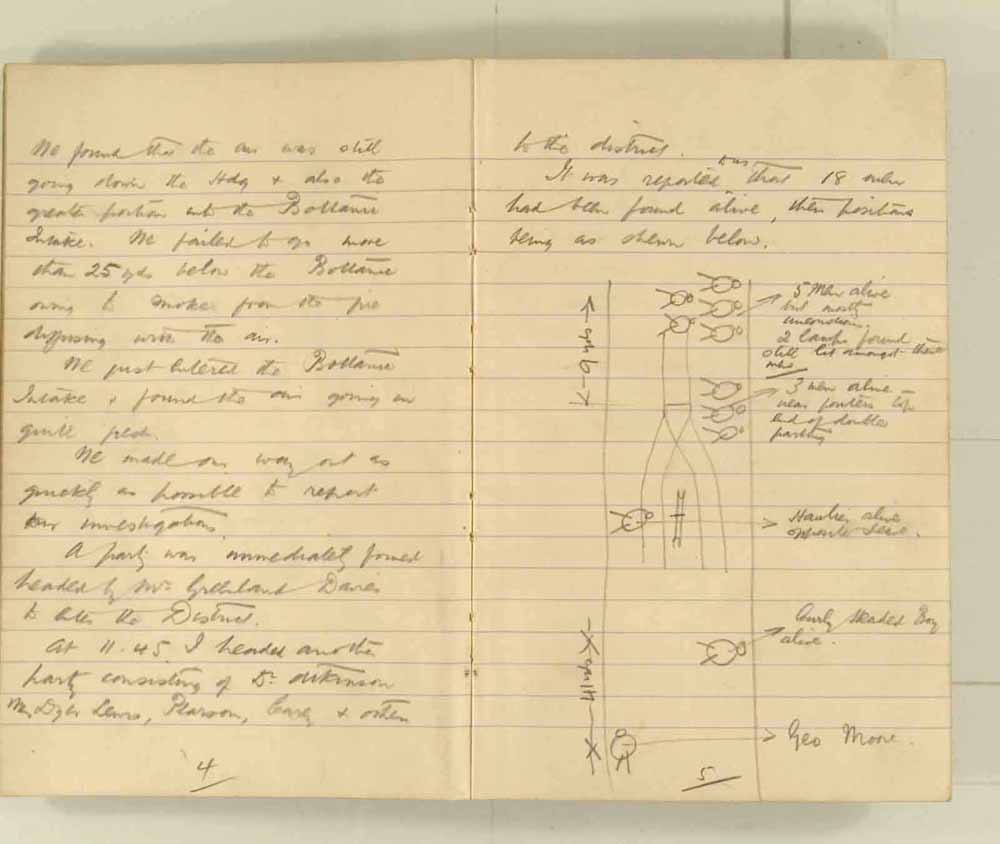 We found that the air was still
going down the Hdg & also the
greater portion into the Bottanic
Intake. We failed to go more
than 25 yds below the Bottanic
owing to smoke from the fire
diffusing with the air.
We just entered the Bottanic
Intake & found the air going in
quite fresh.
We made our way out as
quickly as possible to report
our investigations.
A party was immediately formed
headed by Mr Greenland Davies
to enter the District.
At 11.45 I headed another
party consisting of Dr Atkinson
Dyer Lewis, Pearson, Carey & others
4
to the district.
It was reported to us that 18 men
had been found alive, their positions
being as shewn below.
5 Men alive
but mostly
unconscious.
2 lamps found
still lit amongst these
men
9 yds
3 men alive
near pointers top
end of double
parting
Haulier alive
opposite
Curly Headed Boy
alive.
14 yds
Geo Moore.
5